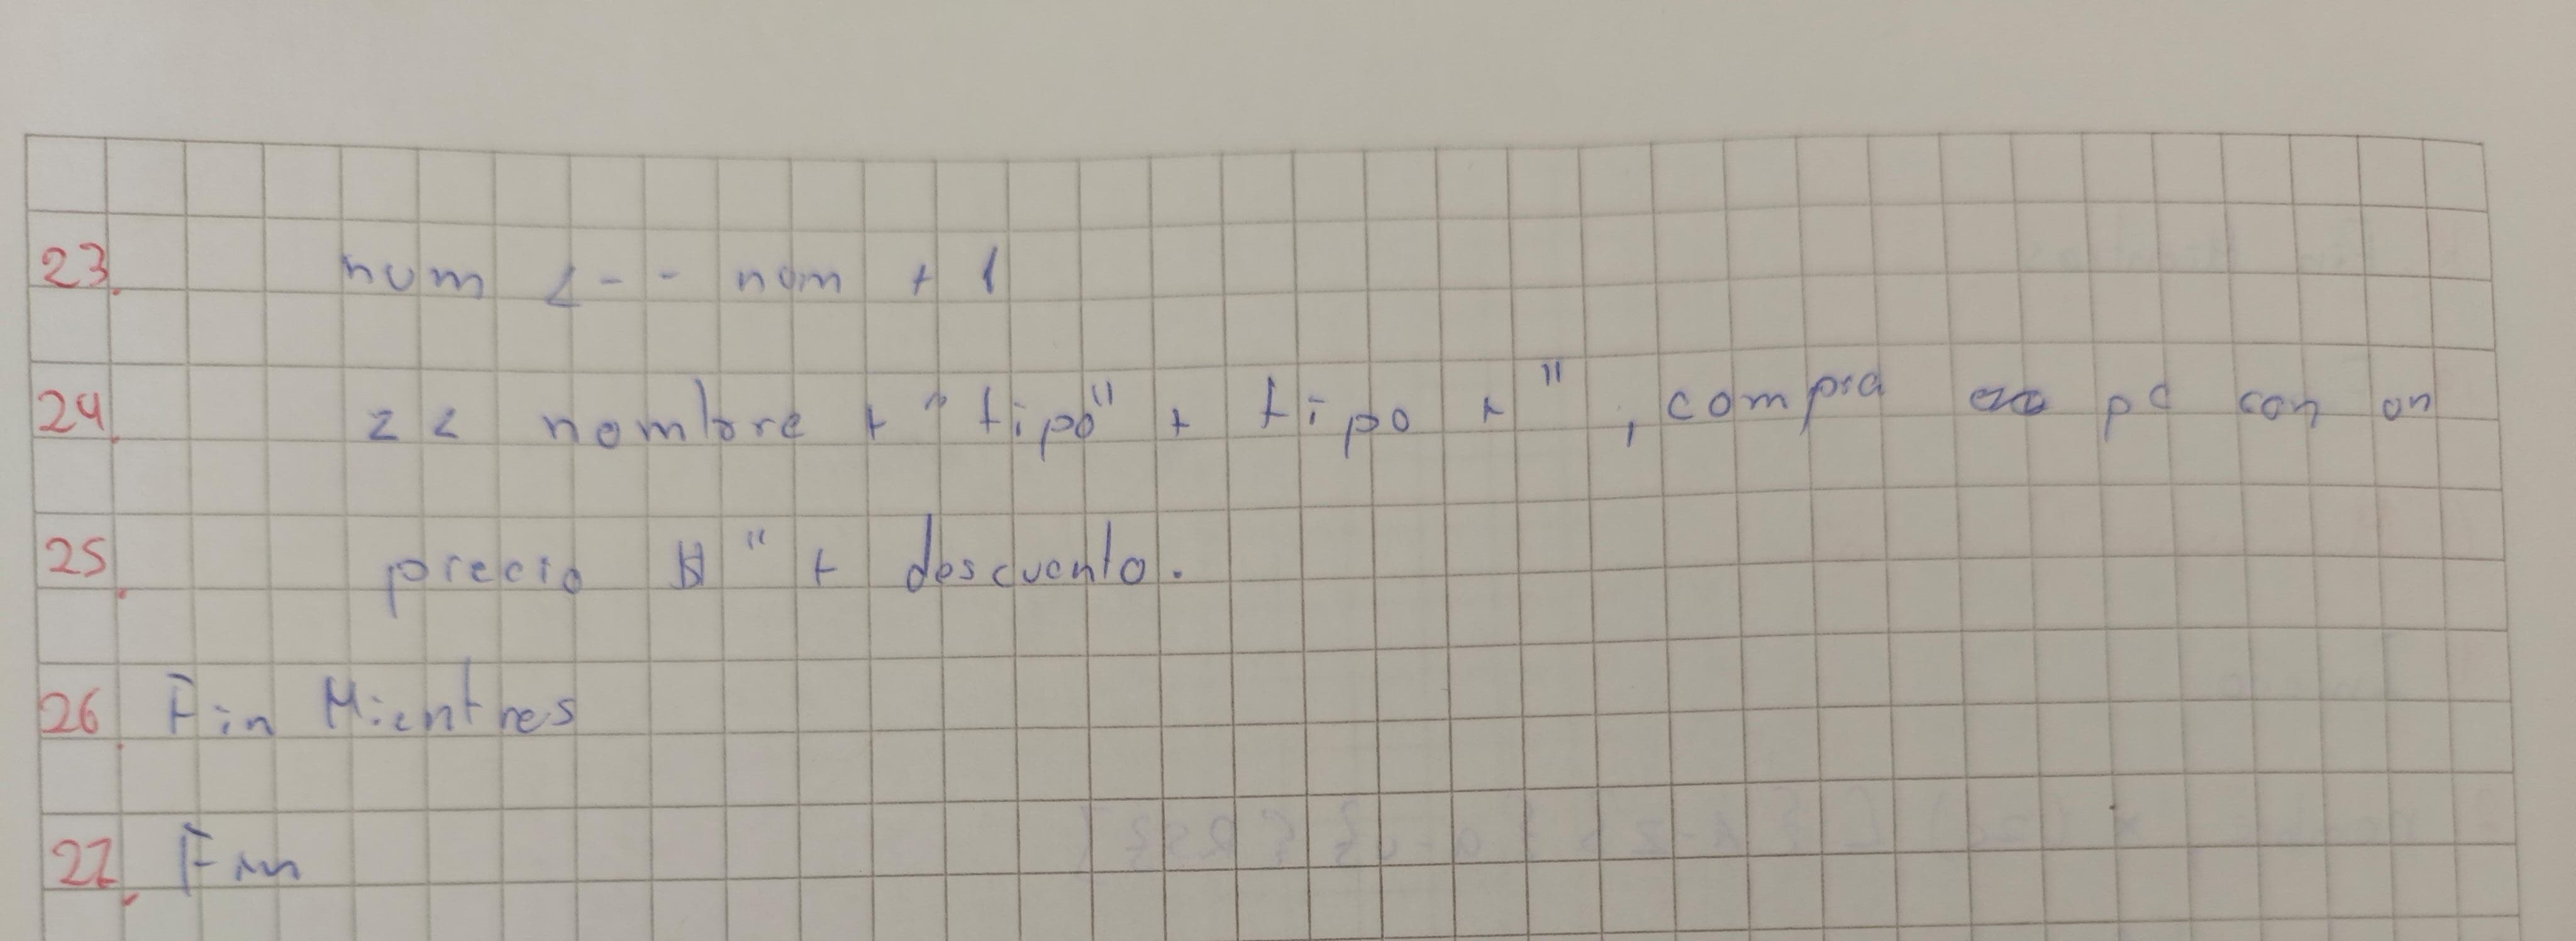 23. num <-- num + 1
24. << nombre + "tipo" + tipo + " , compra pc con un
25. precio " + descuento.
26. Fin Mientres
27. Fin